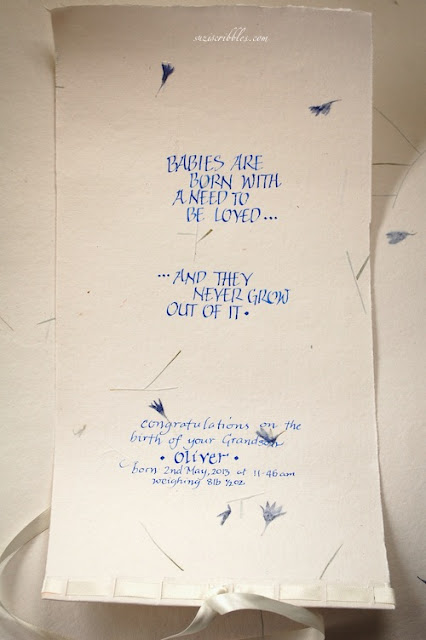 suziscribbles.com
BABIES ARE
BORN WITH
A NEED TO
BE LOVED...
...AND THEY
NEVER GROW
OUT OF IT.
congratulations on the
birth of your Grandson
• Oliver •
born 2nd May, 2013 at 11-46am
weighing 8lb ½oz